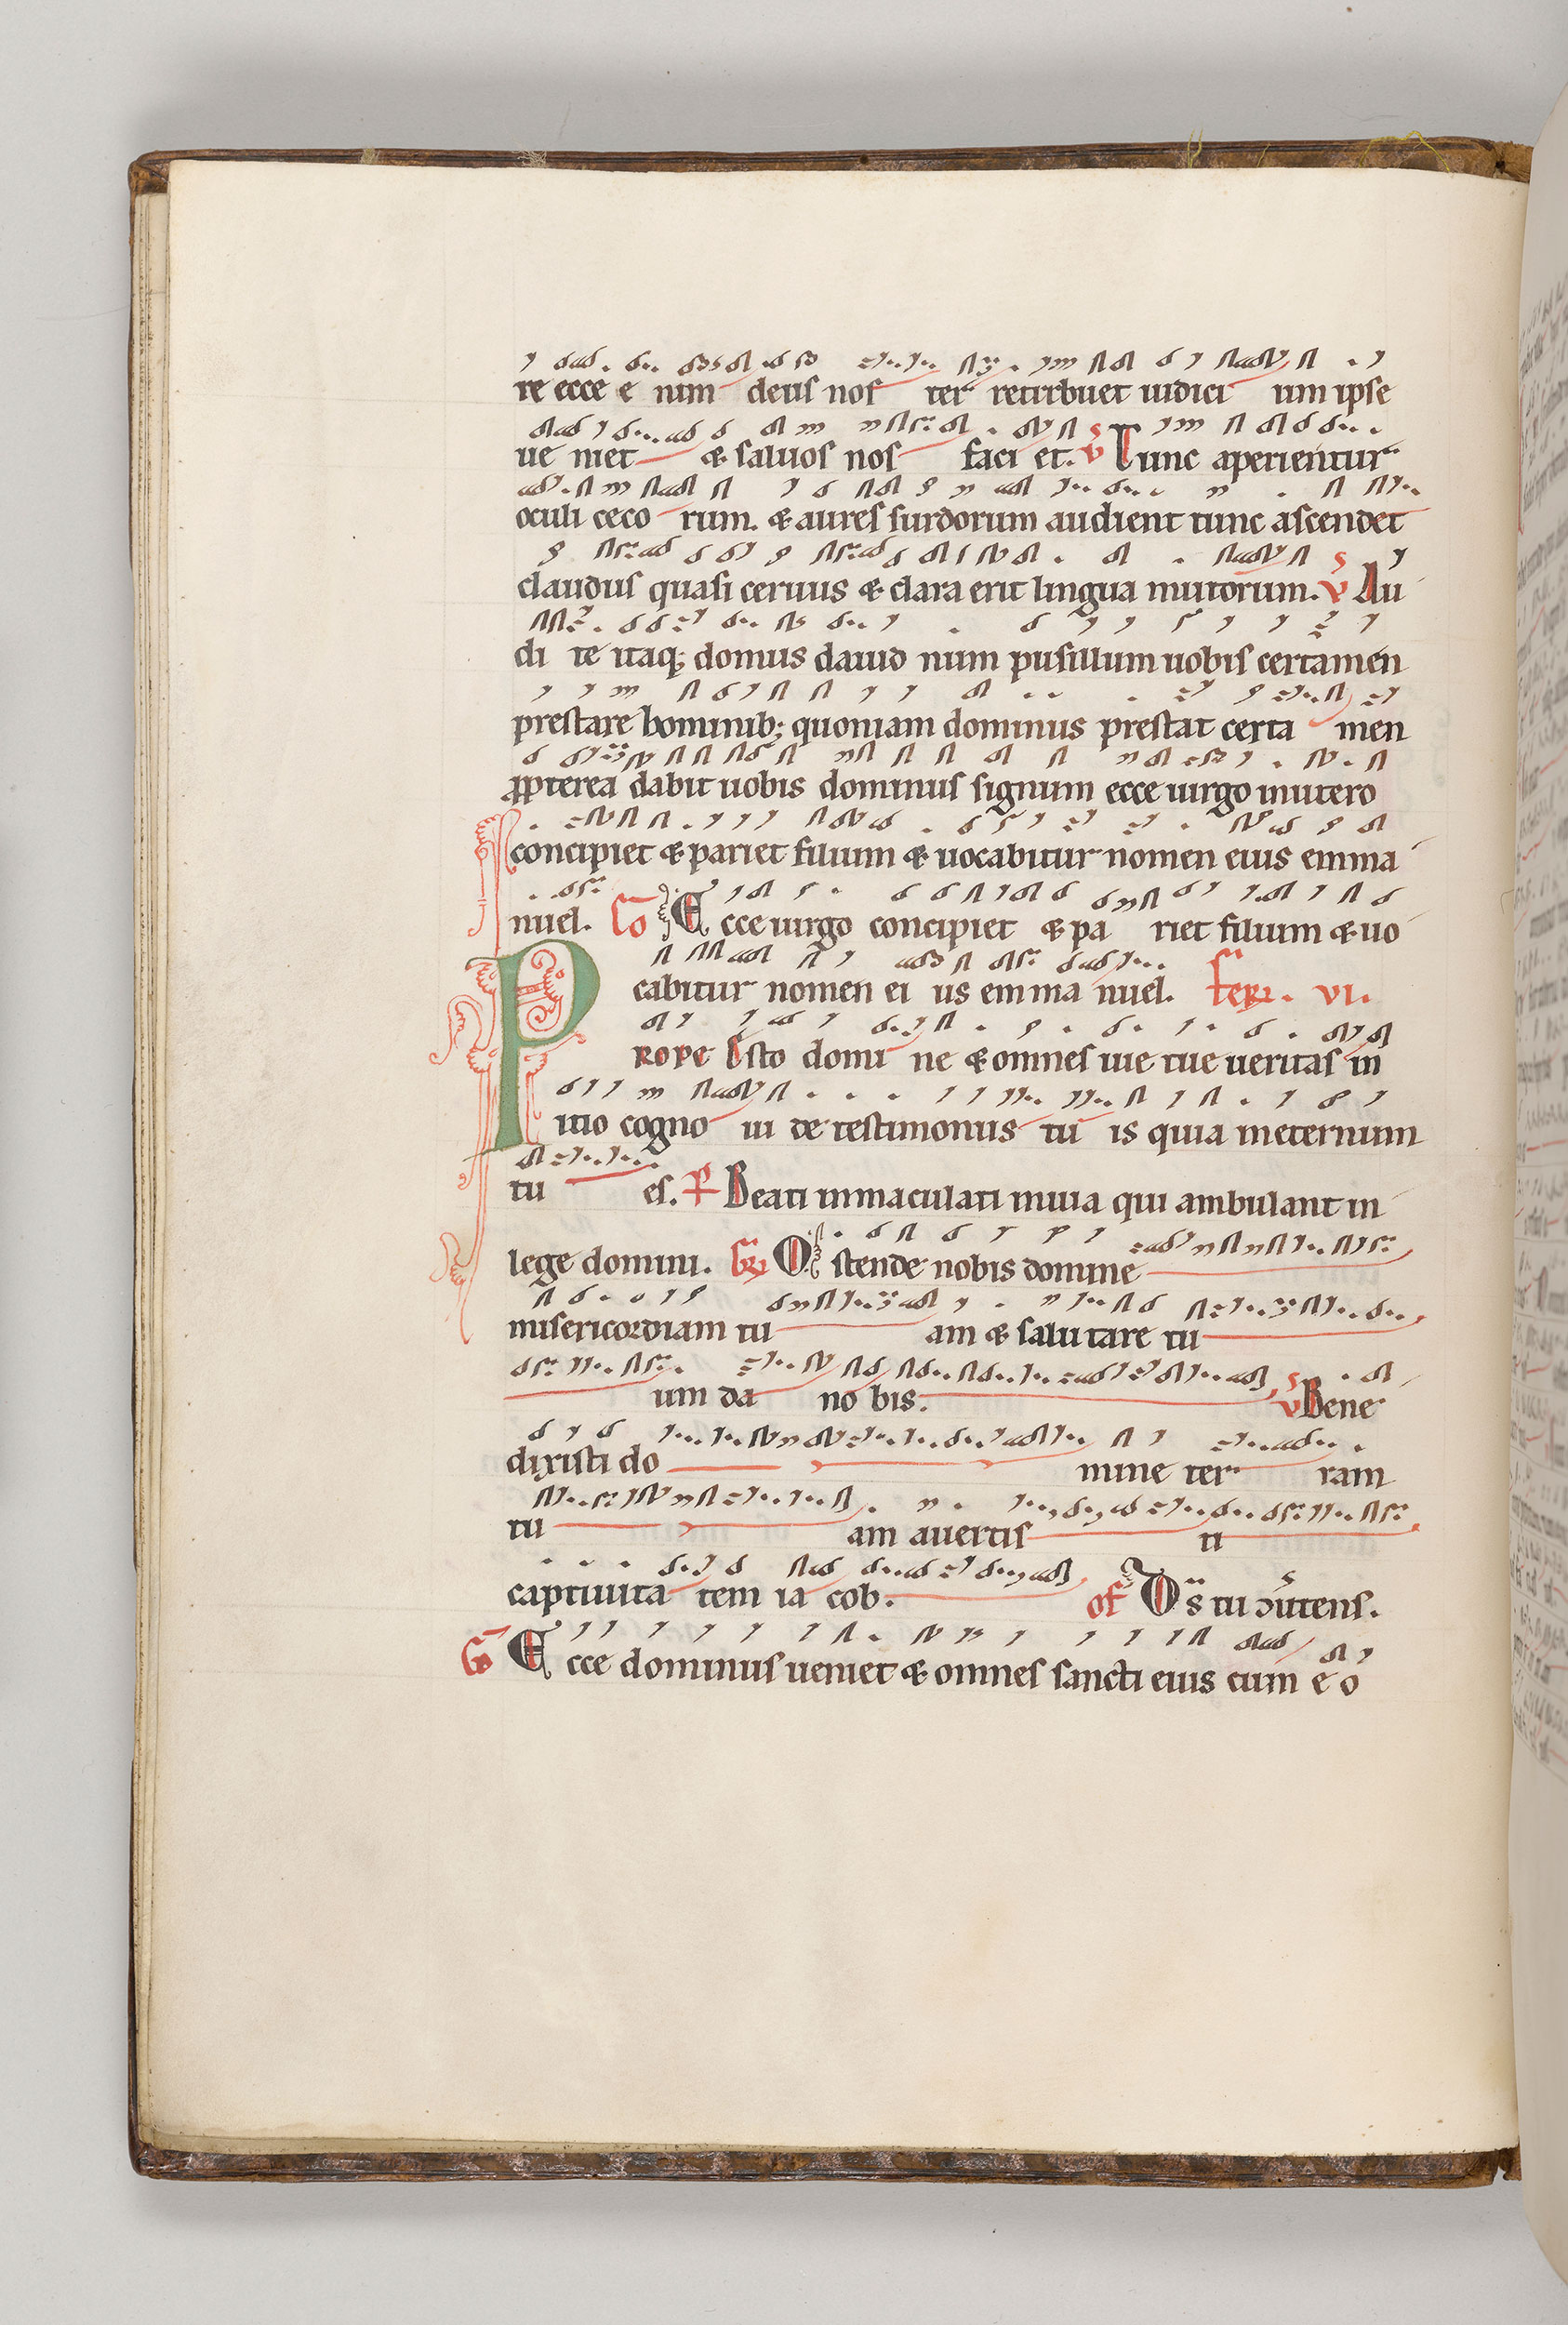 re ecce e nim deus nos ter retribuet iudici um ipse
ue niet & saluos nos faci et. V Tunc aperientur
oculi ceco rum. & aures surdorum audient tunc ascendet
claudus quasi ceruus & clara erit lingua mutorum. V Au
di te itaq; domus dauid num pusillum uobis certamen
prestare hominib; quoniam dominus prestat certa men
ppterea dabit uobis dominus signum ecce uirgo in utero
concipiet & pariet filium & uocabitur nomen eius emma
nuel. Co Ecce uirgo concipiet & pa riet filium & uo
cabitur nomen ei us em ma nuel. feri. VI.
PROPE Esto domi ne & omnes uie tue ueritas in
itio cogno ui de testimoniis tu is quia in eternum
tu es. P Beati inmaculati in uia qui ambulant in
lege domini. Gr Ostende nobis domine
misericordiam tu am & salutare tu
um da no bis. V Bene
dixisti do mine ter ram
tu am auertis ti
captiuita tem ia cob. of Ds tu cūuertens.
Co Ecce dominus ueniet & omnes sancti eius cum e o